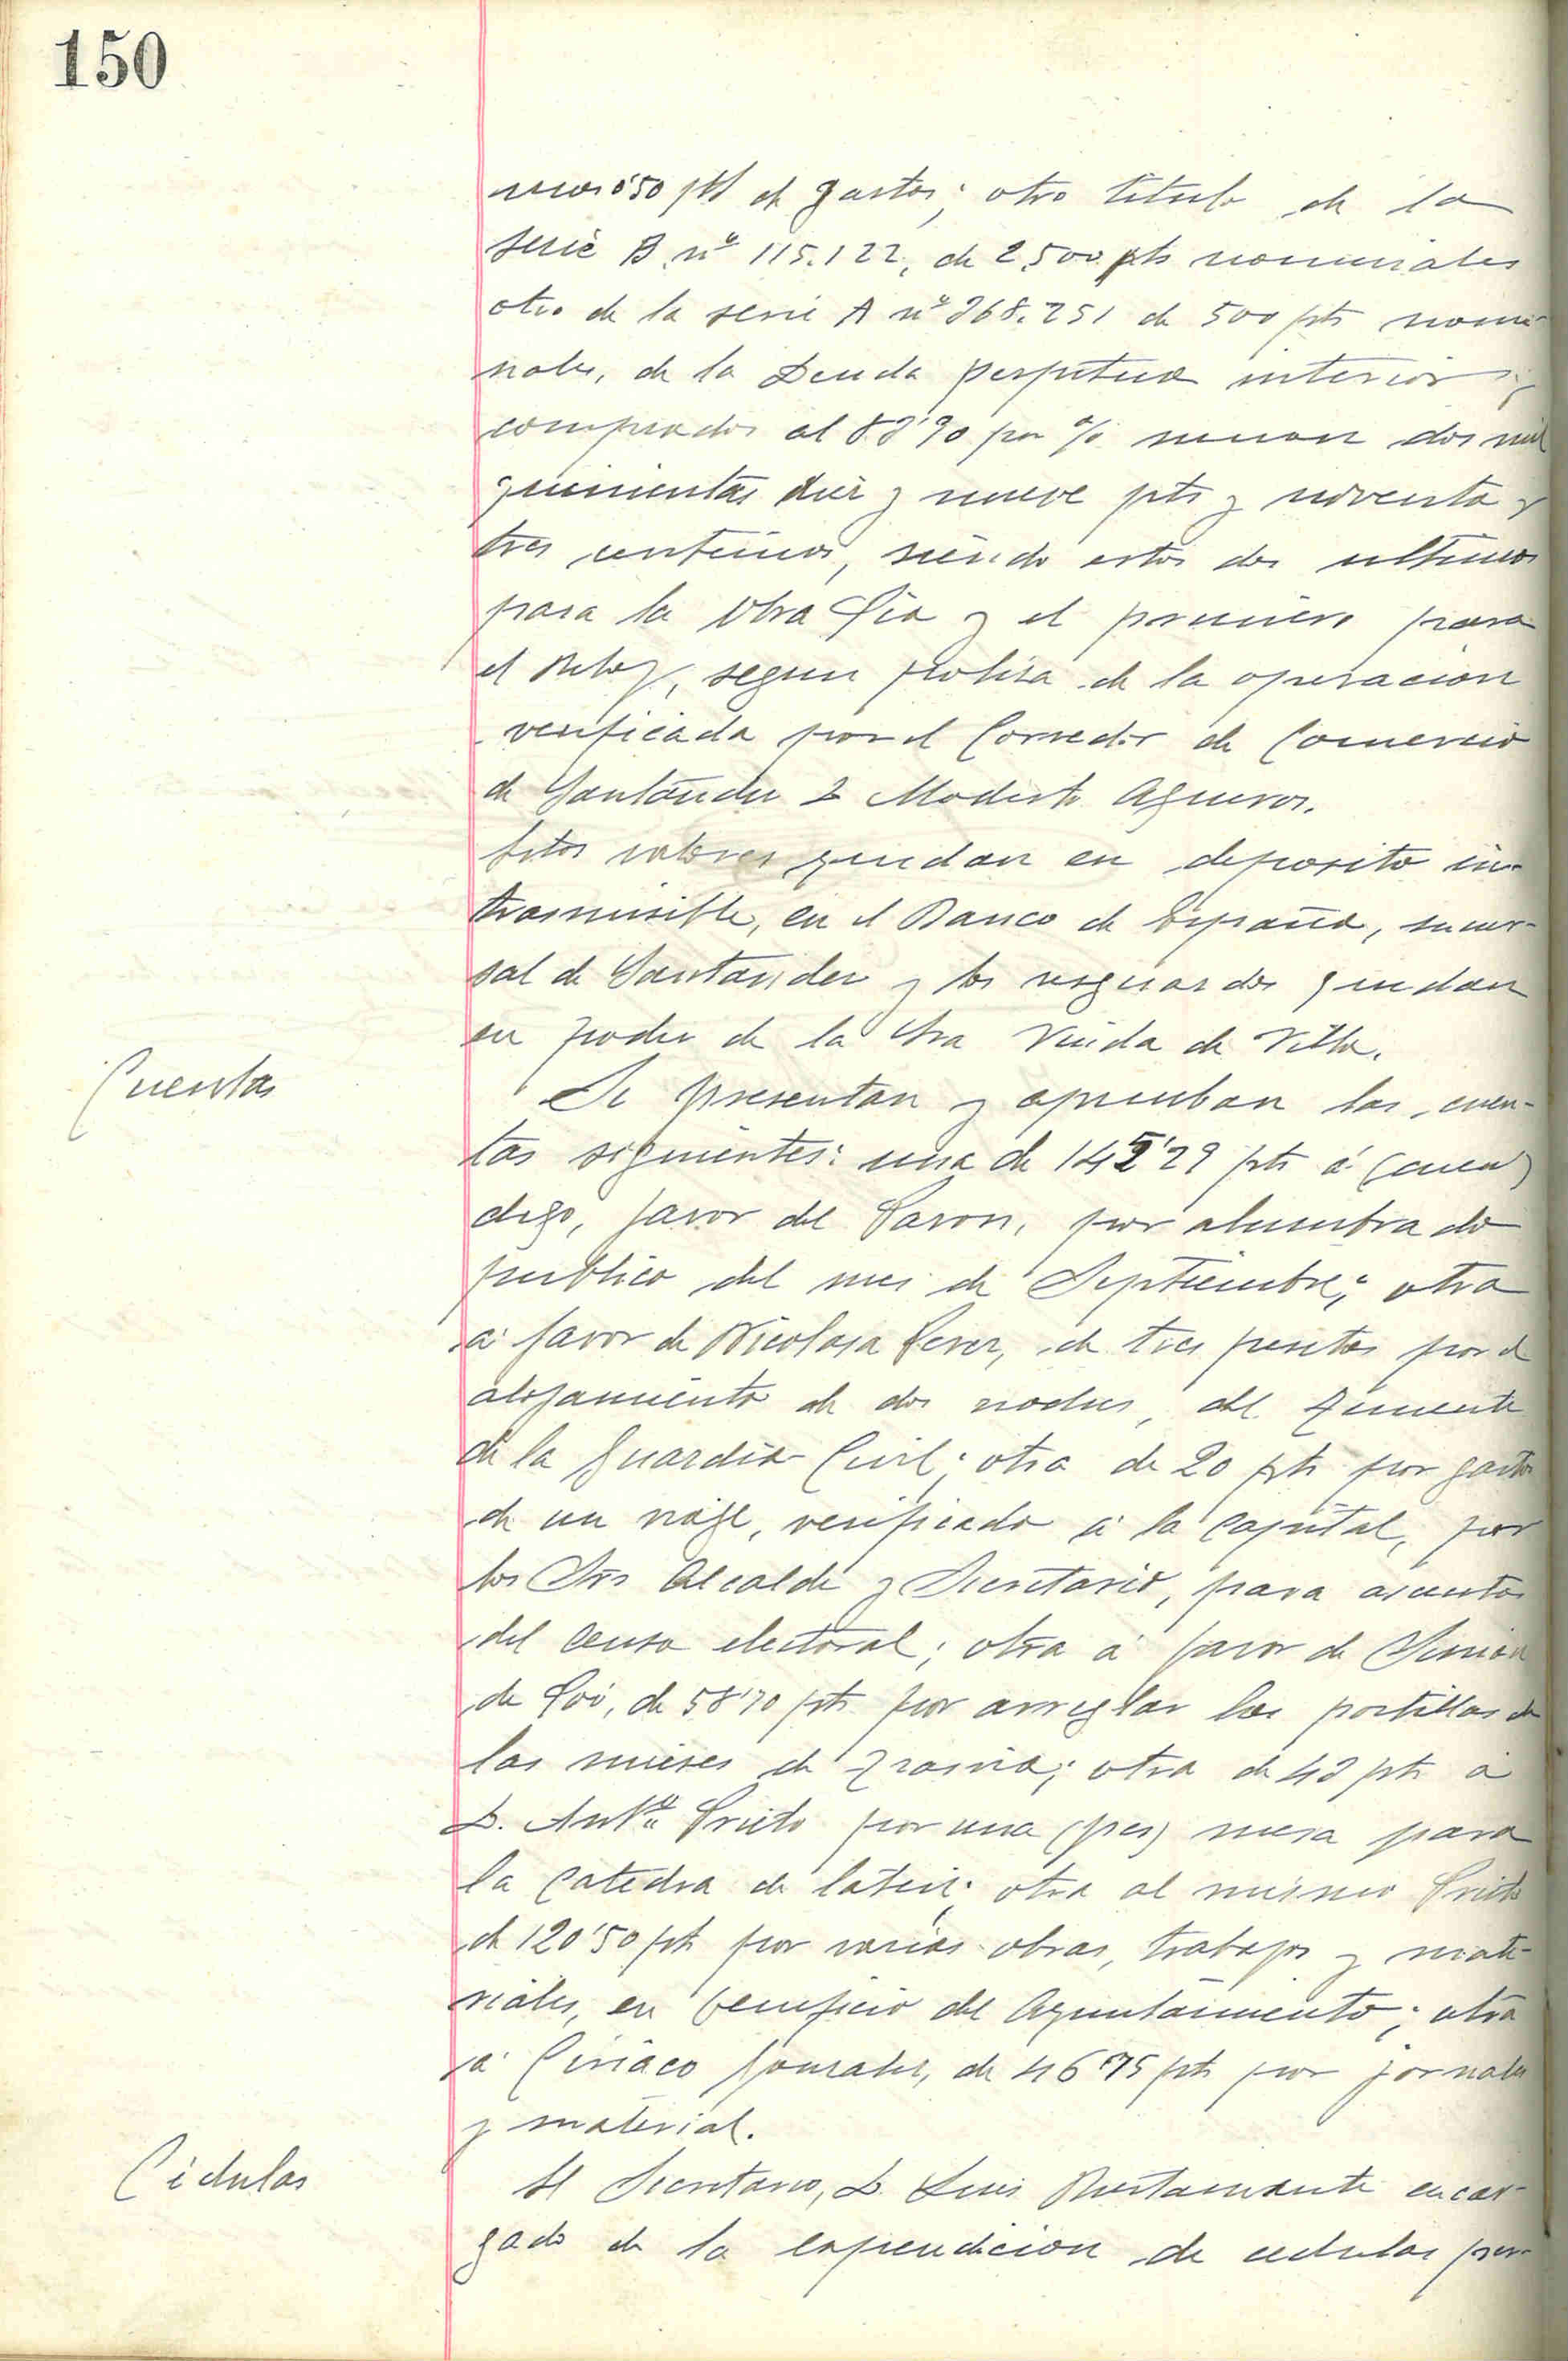 150
50 pts de gastos; otro titulo de la
serie B nº 115.122, de 2,500 pts nominales
otro de la serie A nº 368.251 de 500 pts nomi-
nales, de la Deuda perpetua interior,
comprados al 83'90 por % suman dos mil
quinientas diez y nueve pts y noventa y
tres centimos, siendo estos dos ultimos
para la Obra Pia y el primero para
el Reloj, segun poliza de la operacion
verificada por el Corredor de Comercio
de Santander D Modesto Agueros.
Estos valores quedan en deposito in-
trasmisible, en el Banco de España, sucur-
sal de Santander y los resguardos quedan
en poder de la Sra Viuda de Villa.
Cuentas
Se presentan y aprueban las cuen-
tas siguientes: una de 145'29 pts á (cuen)
digo, favor del Saron, por alumbrado
publico del mes de Septiembre; otra
á favor de Nicolasa Perez, de tres pesetas por el
alojamiento de dos noches, del Teniente
de la Guardia Civil; otra de 20 pts por gastos
de un viaje, verificado á la Capital, por
los Srs Alcalde y Secretario, para asuntos
del censo electoral; otra á favor de Simon
de Coó, de 58'70 pts por arreglar las portillas de
las mieses de; otra de 43 pts á
D. Antº Prieto por una (pes) mesa para
la Catedra de latin; otra al mismo Prieto
de 120'50 pts por varias obras, trabajos y mate-
riales, en beneficio del Ayuntamiento; otra
á Ciriaco Gonzalez, de 46'75 pts por jornales
y material.
Cédulas
El Secretario, D. Luis Bustamante encar-
gado de la expendicion de cedulas per-